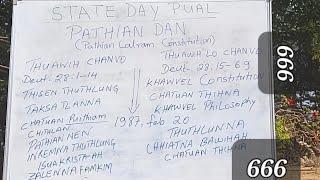 STATE DAY PUAL
PATHIAN DAN
(Pathian Lalram Constitution)
THUAWIH CHANVO
Deut. 28:1-14
THISEN THUTHLUNG
TAKSA TLANNA
CHATUAN
CHITALAN
PATHIAN NEN
INREMNA THUTHLUNG
ISUA KRISTA-AH
ZALENNA FAMKIM
1987, feb 20
THUAWH LO CHANVO
Deut. 28:15-69
KHAWVEL Constitution
CHATUAN THIHNA
KHAWVEL PHILOSOPHY
THUTHLUNNA
CHHIATNA BAWIHAH
CHATUAN THIHNA
666
666